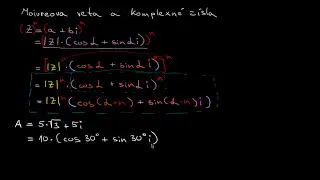 Moivreova veta a komplexné čísla
(z)ⁿ = (a + bi)ⁿ
= (|z|·(cos α + sin α i))ⁿ
= [|z|ⁿ·(cos α + sin α i)ⁿ]
= |z|ⁿ·(cos α + sin α i)ⁿ
= |z|ⁿ(cos(α·n) + sin(α·n) i)
A = 5·√3 + 5i
= 10·(cos 30° + sin 30° i)